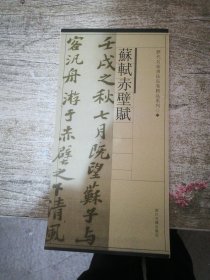 蘇軾赤壁賦
壬戌之秋七月既望蘇子與
客汎舟游于赤壁之下清風